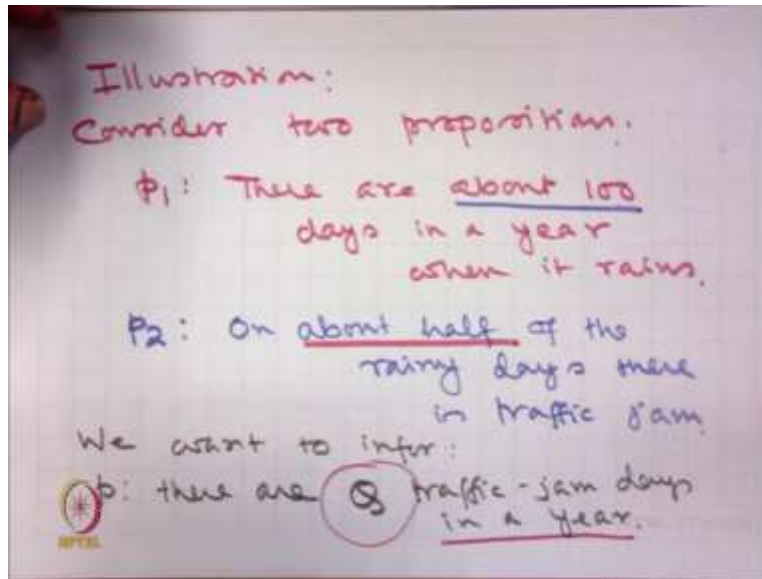 Illustration:
Consider two proposition.
p₁: There are about 100
days in a year
when it rains.
P₂: On about half of the
rainy days there
is traffic jam.
We want to infer:
p: there are Q traffic-jam days
in a year.
NPTEL